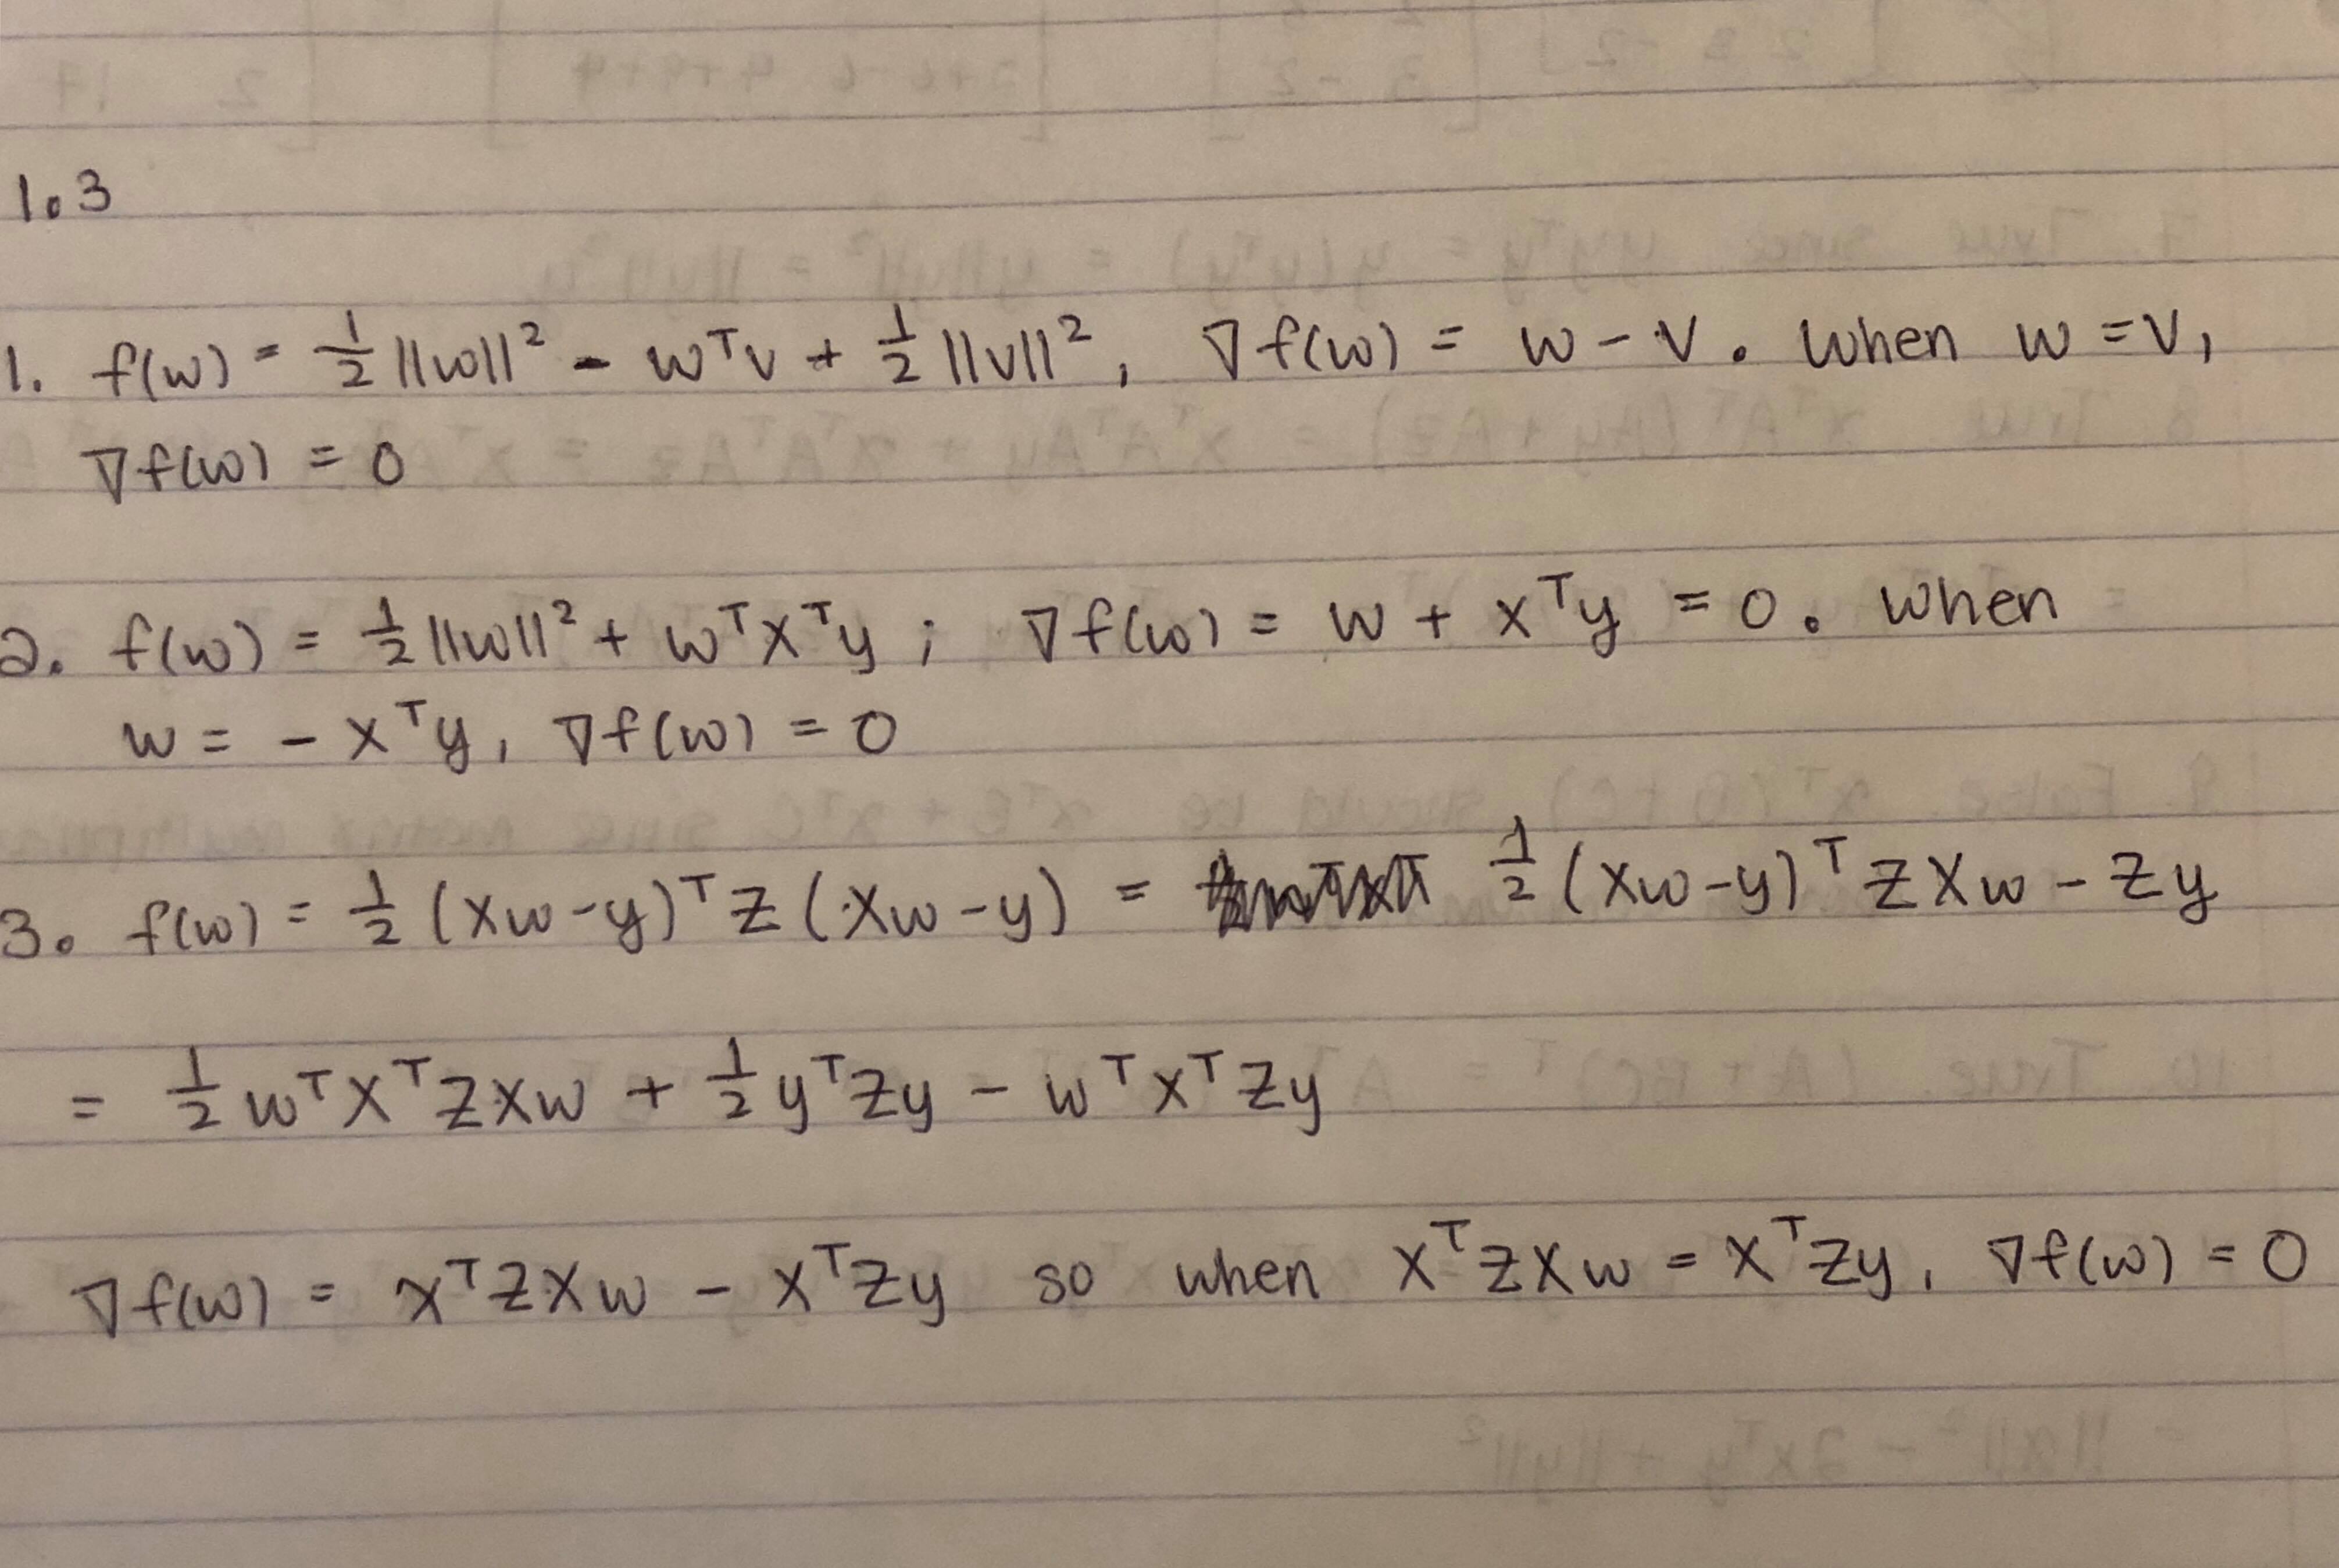 1.3
1. f(w) = 1/2 ||w||² - wᵀv + 1/2 ||v||², ∇f(w) = w - v. when w = v,
∇f(w) = 0
2. f(w) = 1/2 ||w||² + wᵀxᵀy ; ∇f(w) = w + xᵀy = 0. when
w = - xᵀy, ∇f(w) = 0
3. f(w) = 1/2 (xw-y)ᵀ Z (xw-y) = 1/2 (xw-y)ᵀ ZXw - Zy
= 1/2 wᵀXᵀZXw + 1/2 yᵀZy - wᵀxᵀZy
∇f(w) = xᵀZXw - xᵀZy so when xᵀZXw = xᵀZy, ∇f(w) = 0